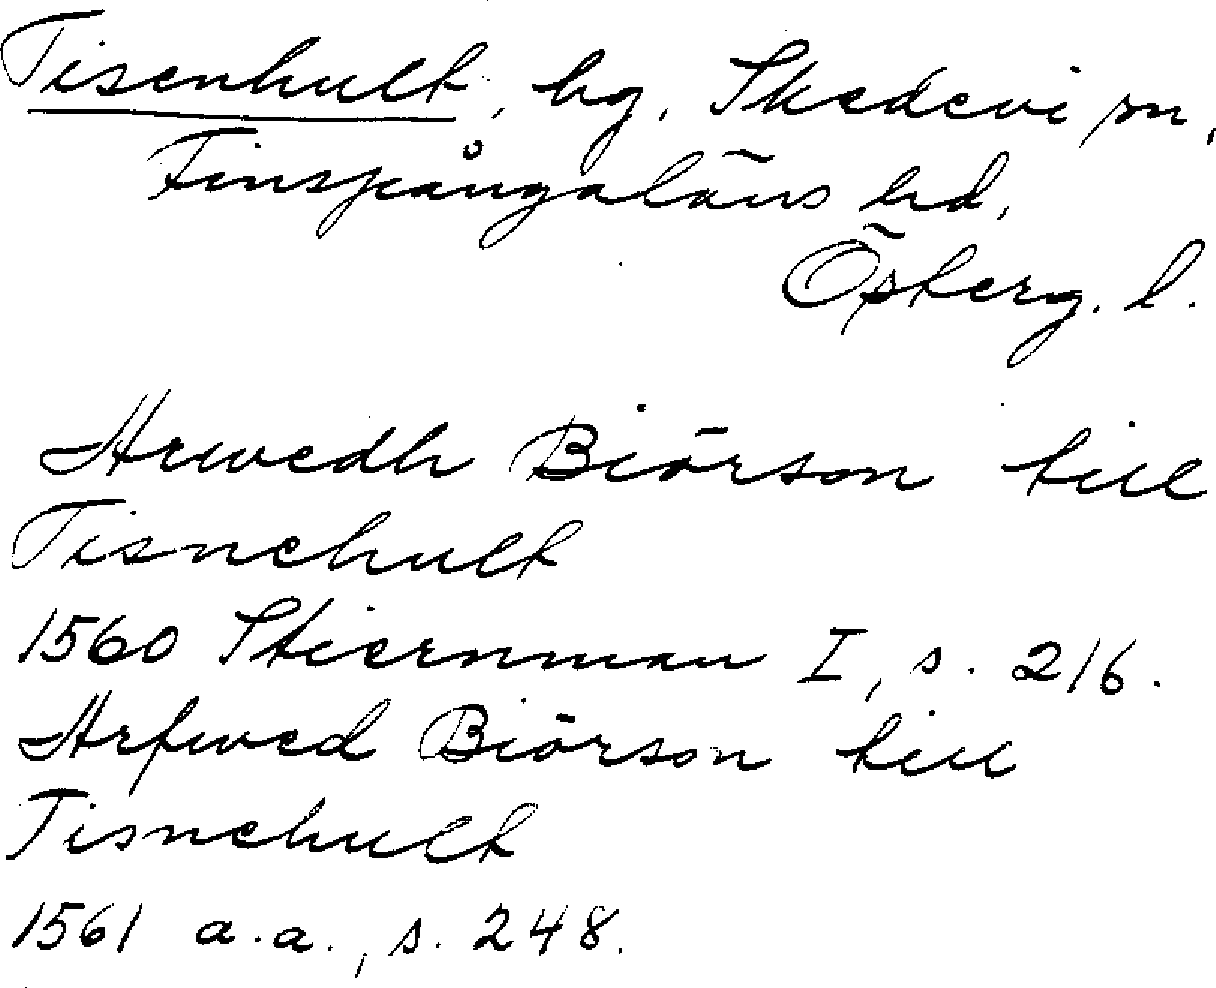 Tisenhult, hg, Skedevi sn,
Finspångaläns hd,
Österg. l.
Arwedh Biörson till
Tisnehult
1560 Stiernman I, s. 216.
Arfwed Biörson till
Tisnehult
1561 a.a., s. 248.